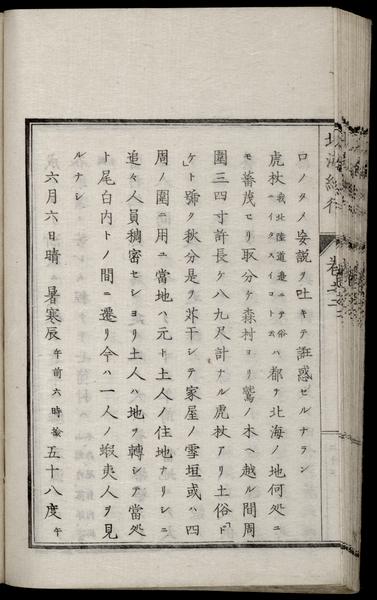 ロノタメ妄説ヲ吐キテ誑惑セルナラン
虎杖我北陸道邊ニテ俗ニイタヘイコト云ハ都テ北海ノ地何処ニ
モ蕃茂セリ取分ケ森村ヨリ鷲ノ木ヘ越ル間周
圍三四寸許長ケ八九尺計ナル虎杖アリ土俗「ド
ケト」號ク秋分是ヲ苅干シテ家屋ノ雪垣或ハ四
周ノ圍ニ用ユ當地ハ元ト土人ノ住地ナリシニ
追々人員稠密セシヨリ土人ハ地ヲ轉シテ當処
ト尾白内トノ間ニ遷リ今ハ一人ノ蝦夷人ヲ見
ルナシ
六月六日晴 暑寒辰午前六時撿五十八度午
北海紀行
巻之二